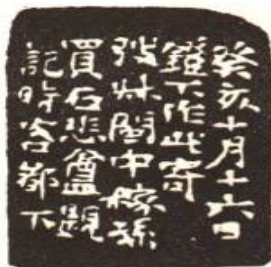 癸亥十月十六日
鐙下作此寄
弢叔閩中稼孫
買石悲盦題
記時客都下